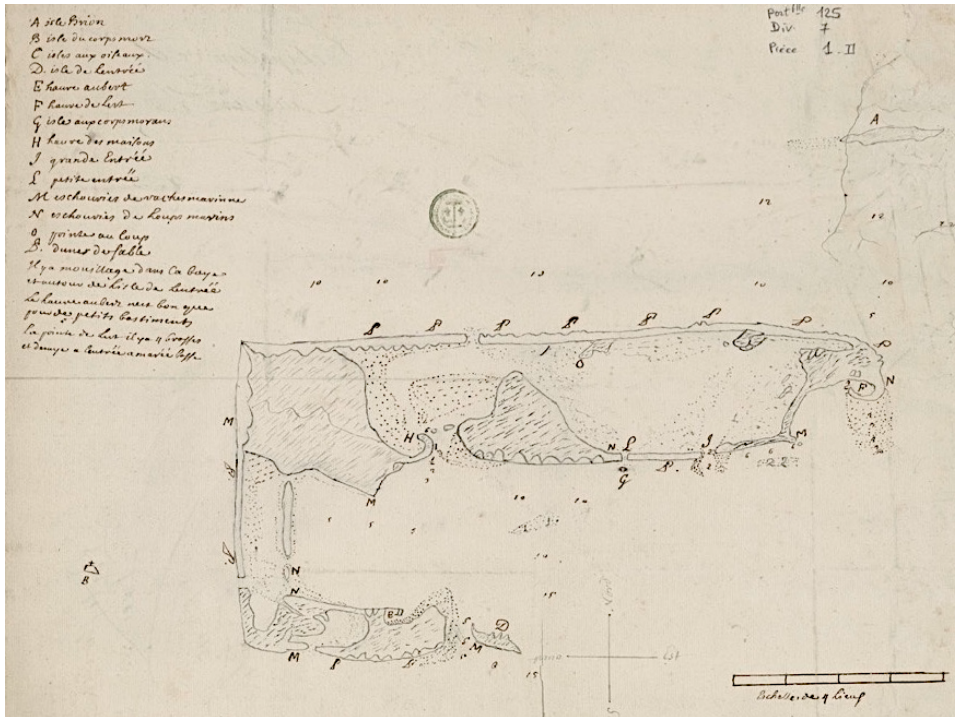 A isle Brion
B isle du corps mort
C isles aux oiseaux
D. isle de Lentrée
E havre aubert
F havre de Lest
G isle aux corps morans
H havre des maisons
J grande Entréé
L petite entréé
M eschouries de vaches marinne
N eschouries de Loups marins
O pointe au loup
P. dunes de sable
Il y a mouillage dans La baye
et autour de Lisle de Lentréé
Le havre aubert nest bon que
pour de petits bastiments
La pointe de Lest il y a 4 brasses
et demye a Lentréé a marée basse
Port lle 125
Div. 7
Pièce 1. II
A
12
12
10
10
10
10
10
5
P P P P P P P
P
O
F
N
M
H
N L
G
P.
J
M
M
10
10
5
5
B
N
N
15
E
D
M
M P
15
Nord
Est
S
Eschelles de 4 Lieus